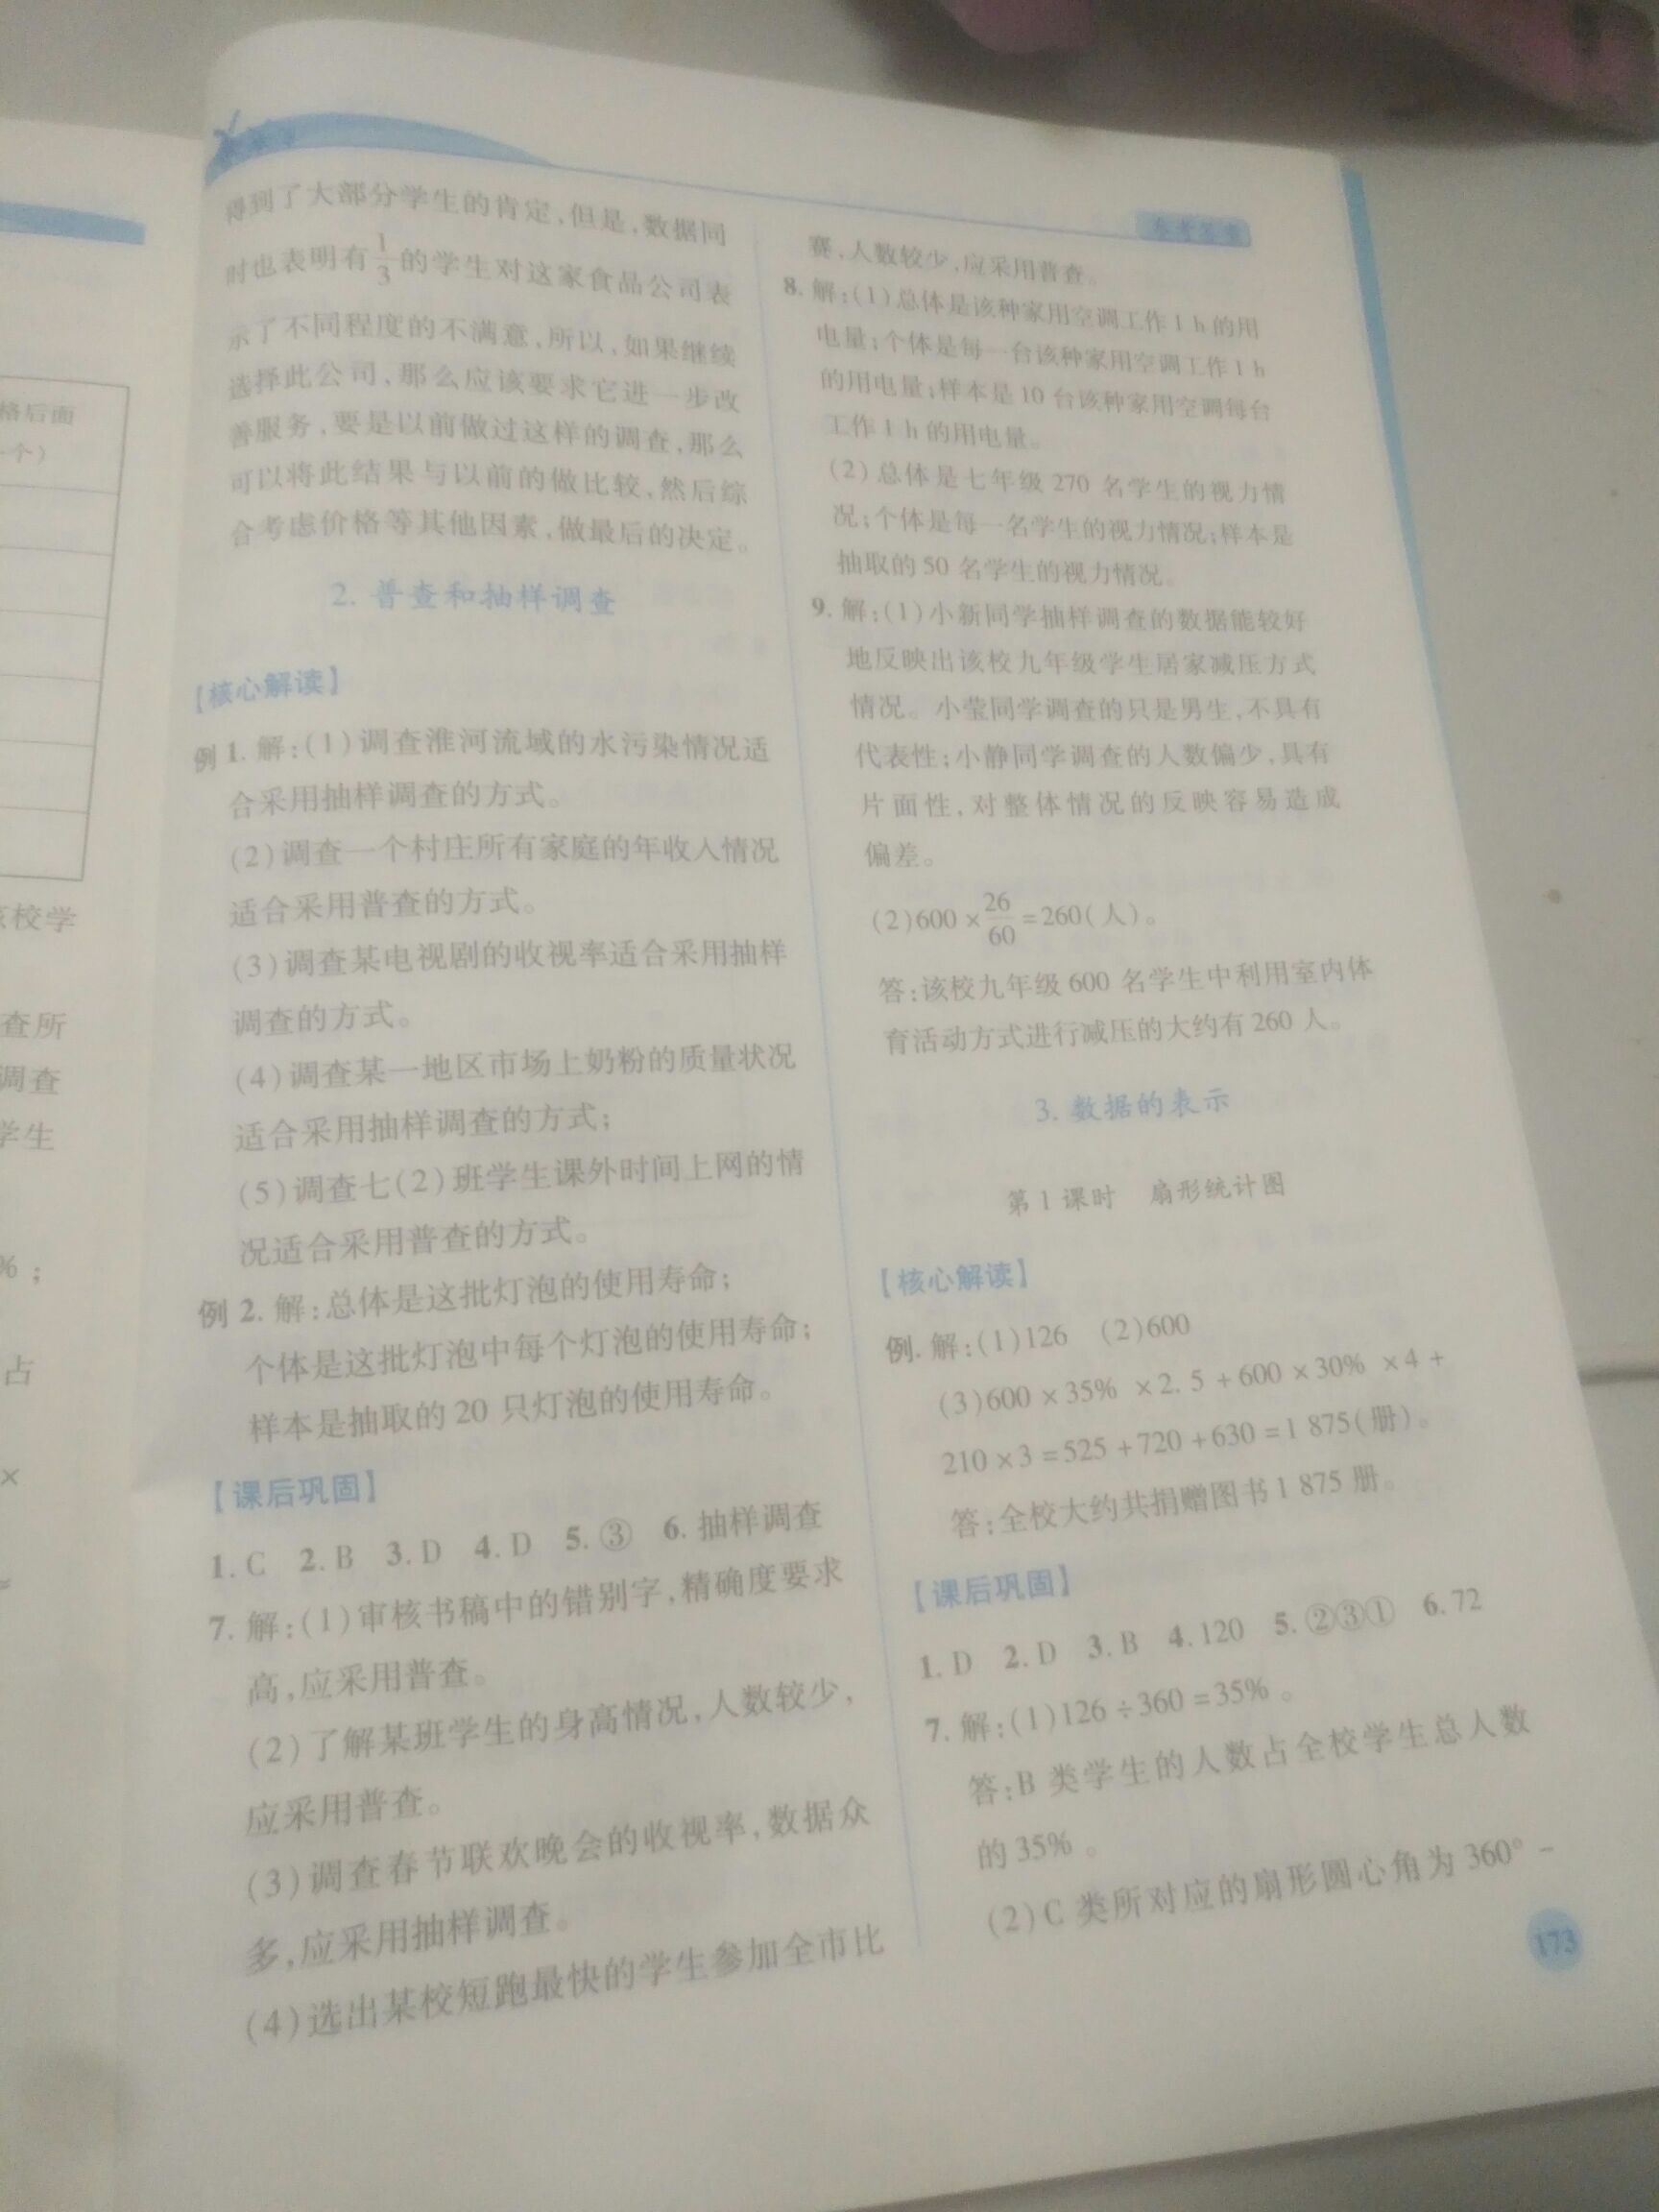 格后面
个）
该校学
查所
调查
学生
%；
占
×
得到了大部分学生的肯定,但是,数据同
时也表明有1/3的学生对这家食品公司表
示了不同程度的不满意,所以,如果继续
选择此公司,那么应该要求它进一步改
善服务,要是以前做过这样的调查,那么
可以将此结果与以前的做比较,然后综
合考虑价格等其他因素,做最后的决定。
2. 普查和抽样调查
【核心解读】
例 1. 解:(1)调查淮河流域的水污染情况适
合采用抽样调查的方式。
(2)调查一个村庄所有家庭的年收入情况
适合采用普查的方式。
(3)调查某电视剧的收视率适合采用抽样
调查的方式。
(4)调查某一地区市场上奶粉的质量状况
适合采用抽样调查的方式;
(5)调查七(2)班学生课外时间上网的情
况适合采用普查的方式。
例 2. 解:总体是这批灯泡的使用寿命;
个体是这批灯泡中每个灯泡的使用寿命;
样本是抽取的 20 只灯泡的使用寿命。
【课后巩固】
1. C 2. B 3. D 4. D 5. ③ 6. 抽样调查
7. 解:(1)审核书稿中的错别字,精确度要求
高,应采用普查。
(2)了解某班学生的身高情况,人数较少,
应采用普查。
(3)调查春节联欢晚会的收视率,数据众
多,应采用抽样调查。
(4)选出某校短跑最快的学生参加全市比
参考答案
赛,人数较少,应采用普查。
8. 解:(1)总体是该种家用空调工作 1 h 的用
电量;个体是每一台该种家用空调工作 1 h
的用电量;样本是 10 台该种家用空调每台
工作 1 h 的用电量。
(2)总体是七年级 270 名学生的视力情
况;个体是每一名学生的视力情况;样本是
抽取的 50 名学生的视力情况。
9. 解:(1)小新同学抽样调查的数据能较好
地反映出该校九年级学生居家减压方式
情况。小莹同学调查的只是男生,不具有
代表性;小静同学调查的人数偏少,具有
片面性,对整体情况的反映容易造成
偏差。
(2)600×26/60=260(人)。
答:该校九年级 600 名学生中利用室内体
育活动方式进行减压的大约有 260 人。
3. 数据的表示
第 1 课时 扇形统计图
【核心解读】
例. 解:(1)126 (2)600
(3)600×35% ×2.5+600×30% ×4+
210×3=525+720+630=1 875(册)。
答:全校大约共捐赠图书 1 875 册。
【课后巩固】
1. D 2. D 3. B 4. 120 5. ②③① 6. 72
7. 解:(1)126÷360=35%。
答:B 类学生的人数占全校学生总人数
的 35%。
(2)C 类所对应的扇形圆心角为 360°-
173